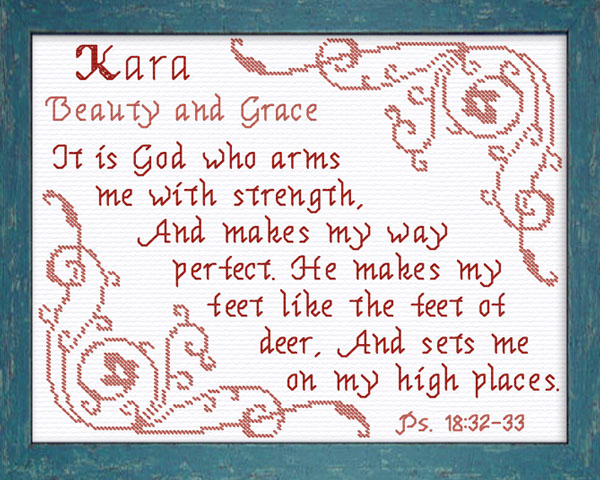 Kara
Beauty and Grace
It is God who arms
me with strength,
And makes my way
perfect. He makes my
feet like the feet of
deer, And sets me
on my high places.
Ps. 18:32-33